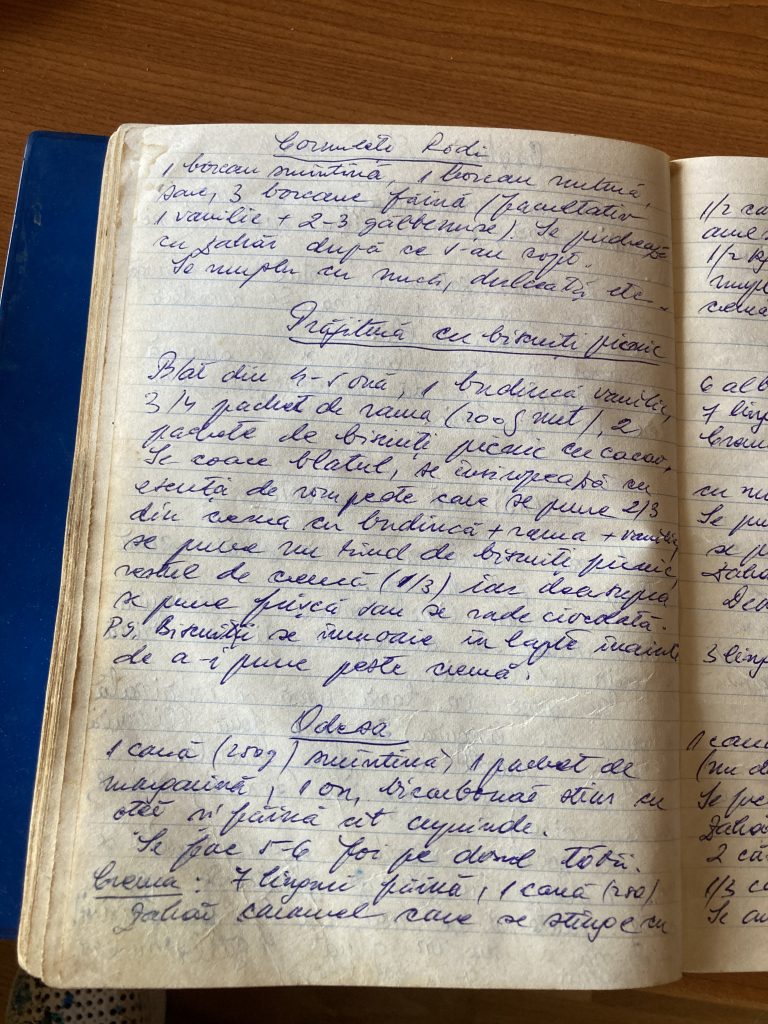 Cornulețe Rodi
1 borcan smîntînă, 1 borcan untură,
sare, 3 borcane făină (facultativ
1 vanilie + 2-3 gălbenuse). Se pudrează
cu zahăr după ce s-au copt.
Se umplu cu nuci, dulceată etc.
Prăjitură cu biscuiți picnic
Blat din 4-5 ouă, 1 budincă vanilie,
3/4 pachet de rama (200g unt), 2
pachete de biscuiți picnic cu cacao.
Se coace blatul, se însiropează cu
esență de rom peste care se pune 2/3
din crema cu budincă + rama + vanilie,
se pune un rînd de biscuiti picnic,
restul de cremă (1/3) iar deasupra
se pune frișcă sau se rade ciocolată.
P.S. Biscuiții se înmoaie în lapte înainte
de a-i pune peste cremă.
Odesa
1 cană (250g) smîntînă, 1 pachet de
margarină, 1 ou, bicarbonat stins cu
oțet si făină cît cuprinde.
Se fac 5-6 foi pe dosul tăvii.
Crema: 7 linguri făină, 1 cană (250)
zahăr caramel care se stinge cu
1/2
1/2 kg
6 alb
7 ling
Se pu
se p
3 ling
1 cană
2 că
1/3